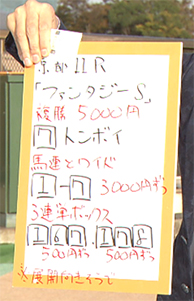 京都11R
「ファンタジーS」
複勝 5000円
7 トンボイ
馬連とワイド
1-7 3000円ずつ
3連単ボックス
167, 178
500円ずつ 500円ずつ
※展開向きそうで